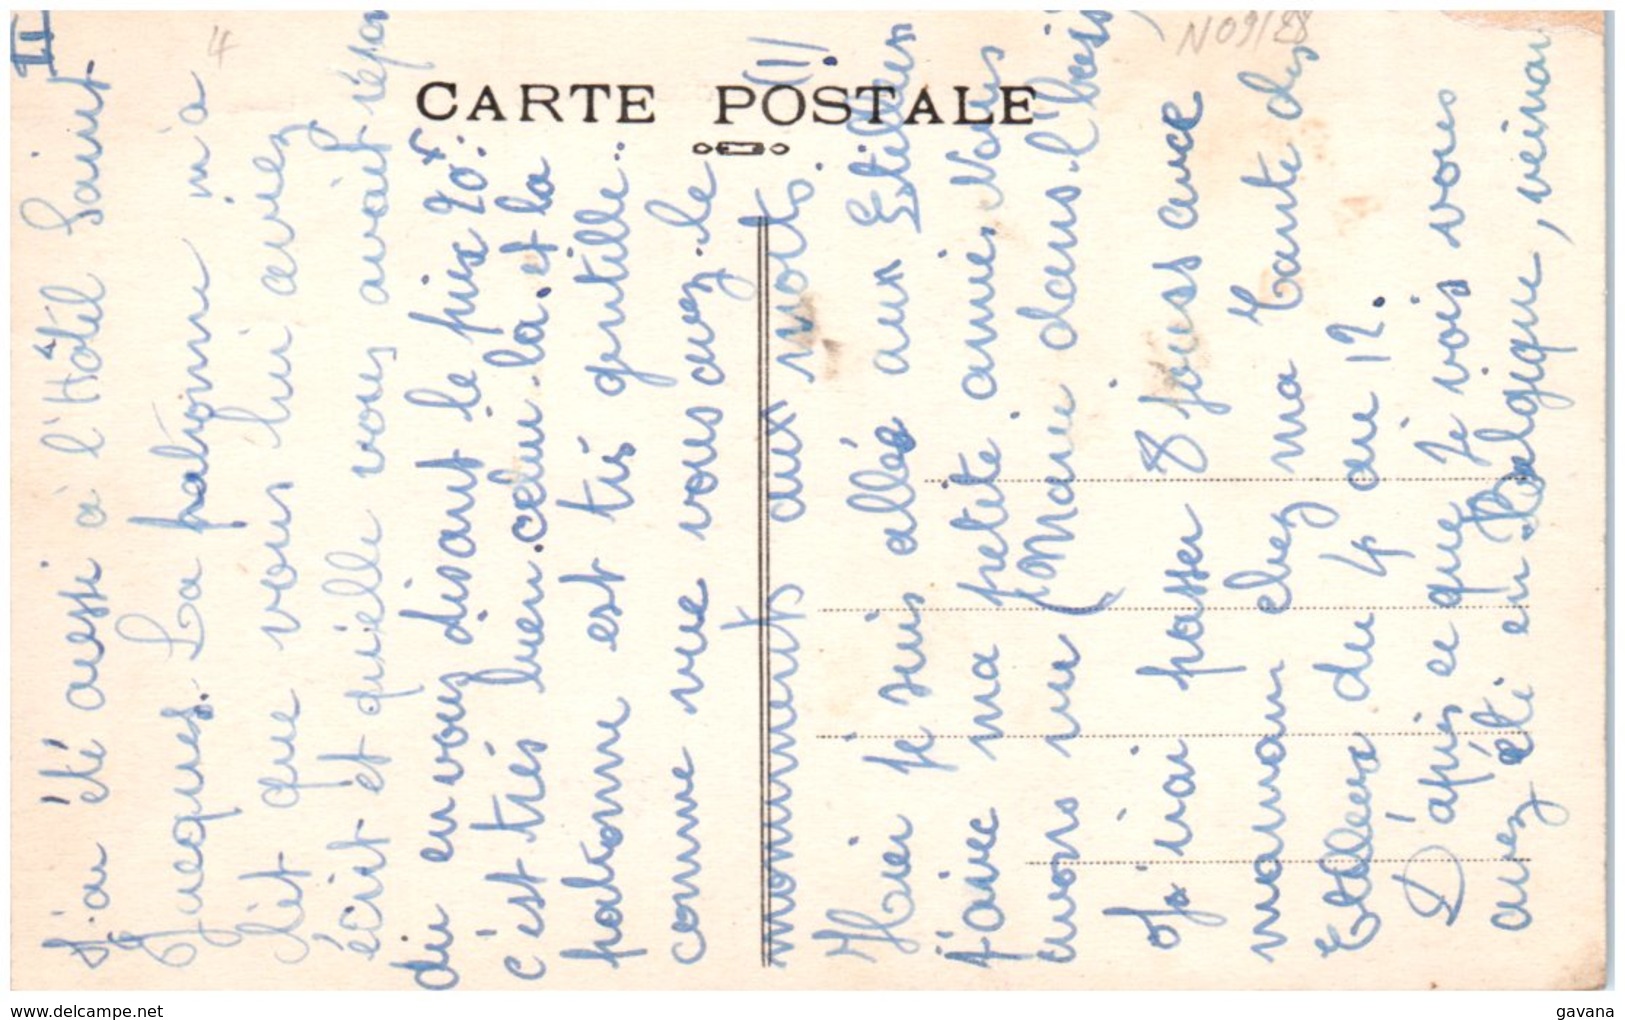 II
4
N09/28
CARTE POSTALE
J'ai été aussi à l'Hôtel Saint.
Jacques. La patronne m'a
dit que vous lui aviez
écrit et qu'elle vous avait répon
du en vous disant le prix 20f.
c'est très bien celui-là. et la
patronne est très gentille.
comme vue vous avez le
monuments aux morts. (1)
Hier je suis allée aux Estillers
avec ma petite amie. Nous
avons vu (Marie dans l'
J'irai passer 8 jours avec
maman chez ma tante des
du 4 au 12.
D'après ce que je vois vous
avez été en Belgique, veinar
www.delcampe.net
gavana